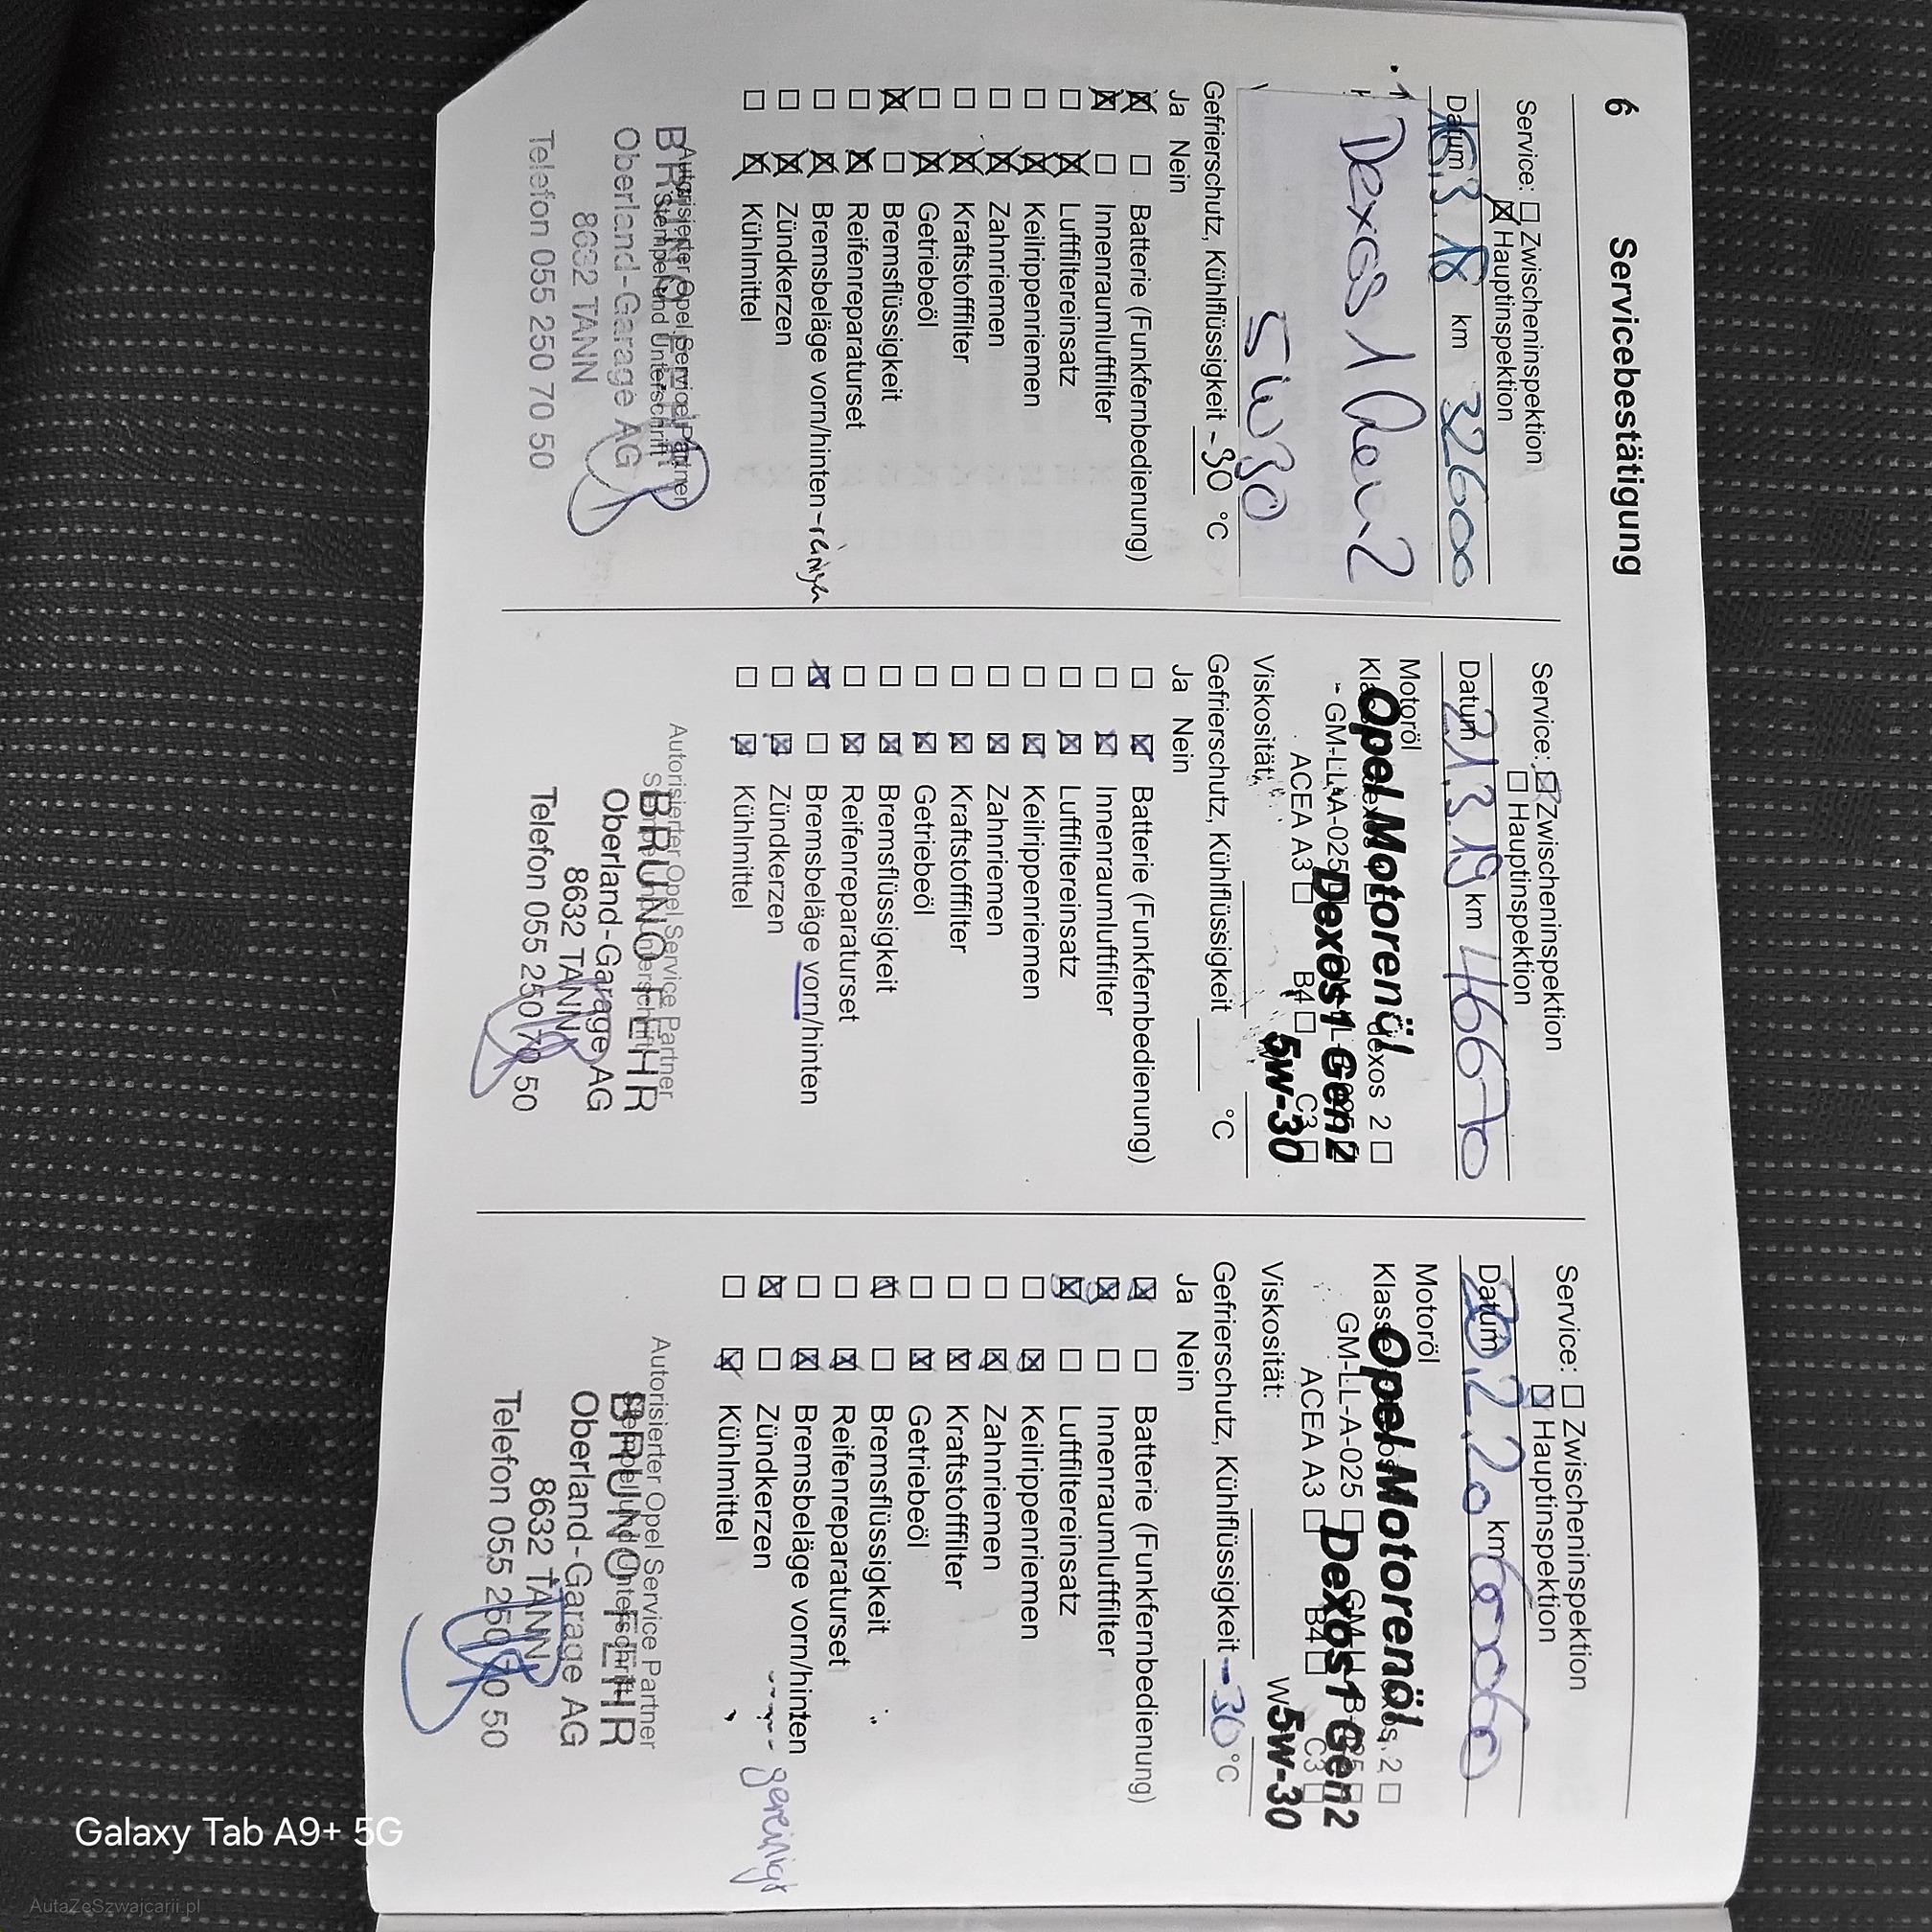 6 Servicebestätigung
Service: ☐ Zwischeninspektion
☒ Hauptinspektion
Datum 16.3.18 km 32600
Dexos 1 Gen 2
5W30
Gefrierschutz, Kühlflüssigkeit -30 °C
Ja Nein
☒ ☐ Batterie (Funkfernbedienung)
☒ ☐ Innenraumluftfilter
☐ ☒ Luftfiltereinsatz
☐ ☒ Keilrippenriemen
☐ ☒ Zahnriemen
☐ ☒ Kraftstofffilter
☐ ☒ Getriebeöl
☒ ☐ Bremsflüssigkeit
☐ ☒ Reifenreparaturset
☐ ☒ Bremsbeläge vorn/hinten
☐ ☒ Zündkerzen
☐ ☒ Kühlmittel
Autorisierter Opel Service Partner
Stempel und Unterschrift
Oberland-Garage AG
8632 TANN
Telefon 055 250 70 50
Service: ☒ Zwischeninspektion
☐ Hauptinspektion
Datum 21.3.19 km 46670
Motoröl
Opel Motorenöl
dexos 2 ☐
GM-LL-A-025 Dexos 1 Gen2
ACEA A3 ☐ B4 ☐ C3 ☐
Viskosität: 5w-30
Gefrierschutz, Kühlflüssigkeit °C
Ja Nein
☐ ☒ Batterie (Funkfernbedienung)
☐ ☒ Innenraumluftfilter
☐ ☒ Luftfiltereinsatz
☐ ☒ Keilrippenriemen
☐ ☒ Zahnriemen
☐ ☒ Kraftstofffilter
☐ ☒ Getriebeöl
☐ ☒ Bremsflüssigkeit
☐ ☒ Reifenreparaturset
☒ ☐ Bremsbeläge vorn/hinten
☐ ☒ Zündkerzen
☐ ☒ Kühlmittel
Autorisierter Opel Service Partner
BRUNO FEHR
Oberland-Garage AG
8632 TANN
Telefon 055 250 70 50
Service: ☐ Zwischeninspektion
☒ Hauptinspektion
Datum 20.2.20 km 60060
Motoröl
Klasse Opel Motorenöl 2 ☐
GM-LL-A-025 ☐ Dexos 1 Gen2
ACEA A3 ☐ B4 ☐ C3 ☐
Viskosität: W 5w-30
Gefrierschutz, Kühlflüssigkeit -30 °C
Ja Nein
☒ ☐ Batterie (Funkfernbedienung)
☒ ☐ Innenraumluftfilter
☒ ☐ Luftfiltereinsatz
☐ ☒ Keilrippenriemen
☐ ☒ Zahnriemen
☐ ☒ Kraftstofffilter
☐ ☒ Getriebeöl
☒ ☐ Bremsflüssigkeit
☐ ☒ Reifenreparaturset
☐ ☒ Bremsbeläge vorn/hinten gereinigt
☒ ☐ Zündkerzen
☐ ☒ Kühlmittel
Autorisierter Opel Service Partner
Stempel und Unterschrift
BRUNO FEHR
Oberland-Garage AG
8632 TANN
Telefon 055 250 70 50
Galaxy Tab A9+ 5G
AutaZeSzwajcarii.pl